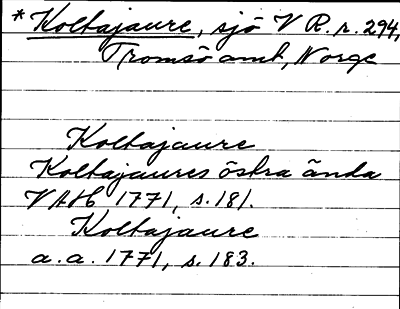 * Koltajaure, sjö V R.r. 294,
Tromsö amt, Norge
Koltajaure
Koltajaures östra ända
VAH 1771, s. 181.
Koltajaure
a.a. 1771, s. 183.